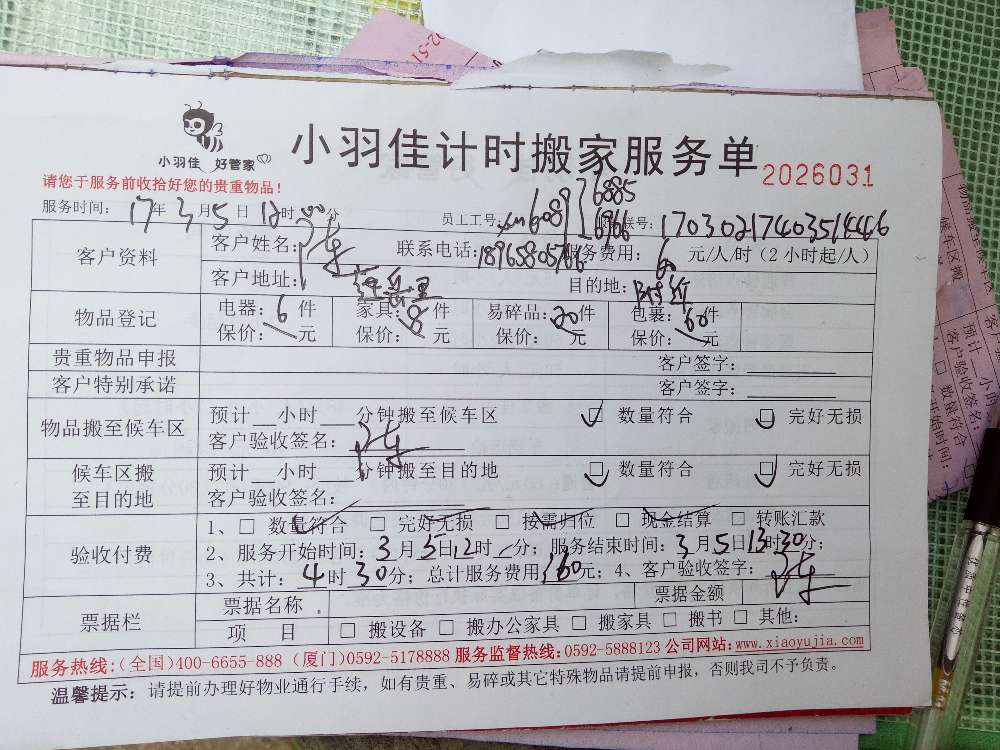 小羽佳 好管家
小羽佳计时搬家服务单
2026031
请您于服务前收拾好您的贵重物品！
服务时间：17年3月5日12时00分 员工工号：6089 6885 6966 联号：17030217403514446
客户资料
客户姓名： 联系电话：18965805766 服务费用：60元/人/时（2小时起/人）
客户地址：莲岳里 目的地：附近
物品登记
电器：6件 家具：8件 易碎品：20件 包裹：60件
保价： 元 保价： 元 保价： 元 保价： 元
贵重物品申报 客户签字：
客户特别承诺 客户签字：
物品搬至候车区
预计__小时___分钟搬至候车区 ☑ 数量符合 ☑ 完好无损
客户验收签名：
候车区搬至目的地
预计__小时___分钟搬至目的地 ☑ 数量符合 ☑ 完好无损
客户验收签名：
验收付费
1、□ 数量符合 □ 完好无损 □ 按需归位 □ 现金结算 □ 转账汇款
2、服务开始时间：3月5日12时 分；服务结束时间：3月5日13时30分；
3、共计：4时30分；总计服务费用 元；4、客户验收签字：
票据栏
票据名称 票据金额
项 目 □ 搬设备 □ 搬办公家具 □ 搬家具 □ 搬书 □ 其他：
服务热线：（全国）400-6655-888（厦门）0592-5178888 服务监督热线：0592-5888123 公司网站：www.xiaoyujia.com
温馨提示：请提前办理好物业通行手续，如有贵重、易碎或其它特殊物品请提前申报，否则我司不予负责。